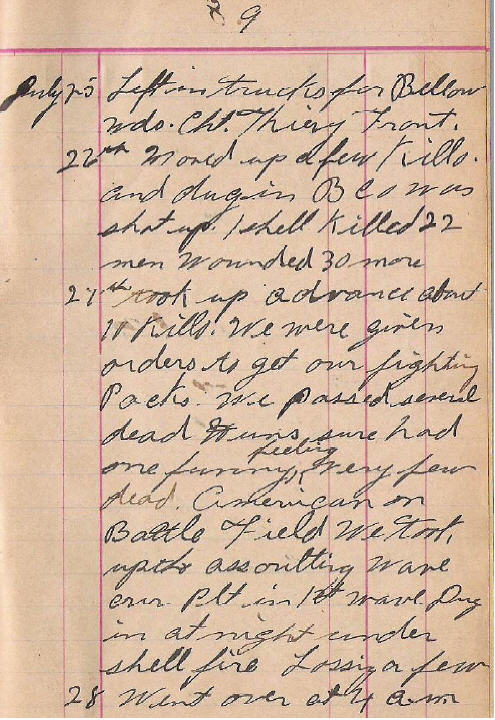 9
July 25 Left in trucks for Bellow
wds. Cht. Thiery Front.
26th Moved up a few Kills.
and dug in B Co was
shot up. 1 shell Killed 22
men Wounded 30 more
27th took up advance about
11 Kills. We were given
orders to get our fighting
Packs. We passed several
dead Huns sure had
one funny feeling, Very few
dead. American on
Battle Field We took
up the assoulting Wave
our Plt in 1st wave Dug
in at night under
shell fire Lossing a few
28 Went over at 4 a.m